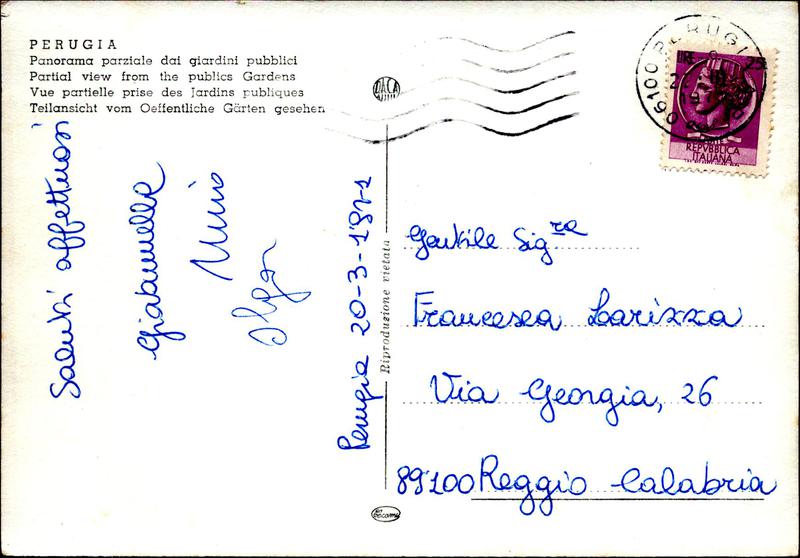 PERUGIA
Panorama parziale dai giardini pubblici
Partial view from the publics Gardens
Vue partielle prise des Jardins publiques
Teilansicht vom Oeffentliche Gärten gesehen
DACA
06100 PERUGIA
REPVBBLICA
ITALIANA
Saluti affettuosi
Nino
Olga
Perugia 20-3-1971
Riproduzione vietata
Gentile Sig.ra
Francesca Larizza
Via Georgia, 26
89100 Reggio Calabria